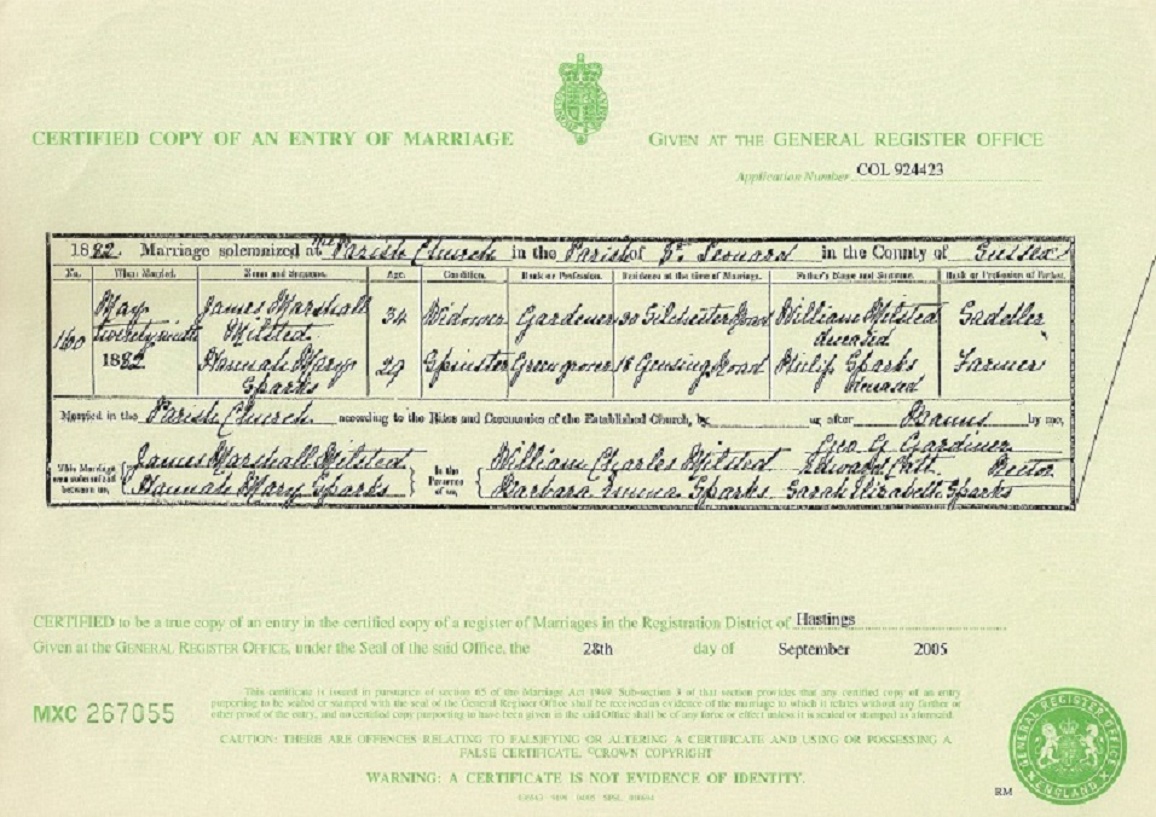 CERTIFIED COPY OF AN ENTRY OF MARRIAGE
GIVEN AT THE GENERAL REGISTER OFFICE
Application Number COL 924423
1882. Marriage solemnized at the Parish Church in the Parish of St. Leonard in the County of Sussex
No. When Married. Name and Surname. Age. Condition. Rank or Profession. Residence at the time of Marriage. Father's Name and Surname. Rank or Profession of Father.
160
May
1882
James Marshall Milsted 34 Widower Gardener 30 Silchester Road William Milsted deceased Saddler
Hannah Mary Sparks 29 Spinster Greengrocer 18 Gensing Road Philip Sparks deceased Farmer
Married in the Parish Church according to the Rites and Ceremonies of the Established Church, by or after Banns by me,
Geo G Gardiner
This Marriage was solemnized between us, James Marshall Milsted
Hannah Mary Sparks
In the Presence of us, William Charles Milsted Edward Catt Rector
Barbara Emma Sparks Sarah Elizabeth Sparks
CERTIFIED to be a true copy of an entry in the certified copy of a register of Marriages in the Registration District of Hastings
Given at the GENERAL REGISTER OFFICE, under the Seal of the said Office, the 28th day of September 2005
MXC 267055
This certificate is issued in pursuance of section 65 of the Marriage Act 1949. Sub-section 3 of that section provides that any certified copy of an entry
purporting to be sealed or stamped with the seal of the General Register Office shall be received as evidence of the marriage to which it relates without any further or
other proof of the entry, and no certified copy purporting to have been given in the said Office shall be of any force or effect unless it is sealed or stamped as aforesaid.
CAUTION: THERE ARE OFFENCES RELATING TO FALSIFYING OR ALTERING A CERTIFICATE AND USING OR POSSESSING A
FALSE CERTIFICATE. ©CROWN COPYRIGHT
WARNING: A CERTIFICATE IS NOT EVIDENCE OF IDENTITY.
GENERAL REGISTER OFFICE
ENGLAND
RM